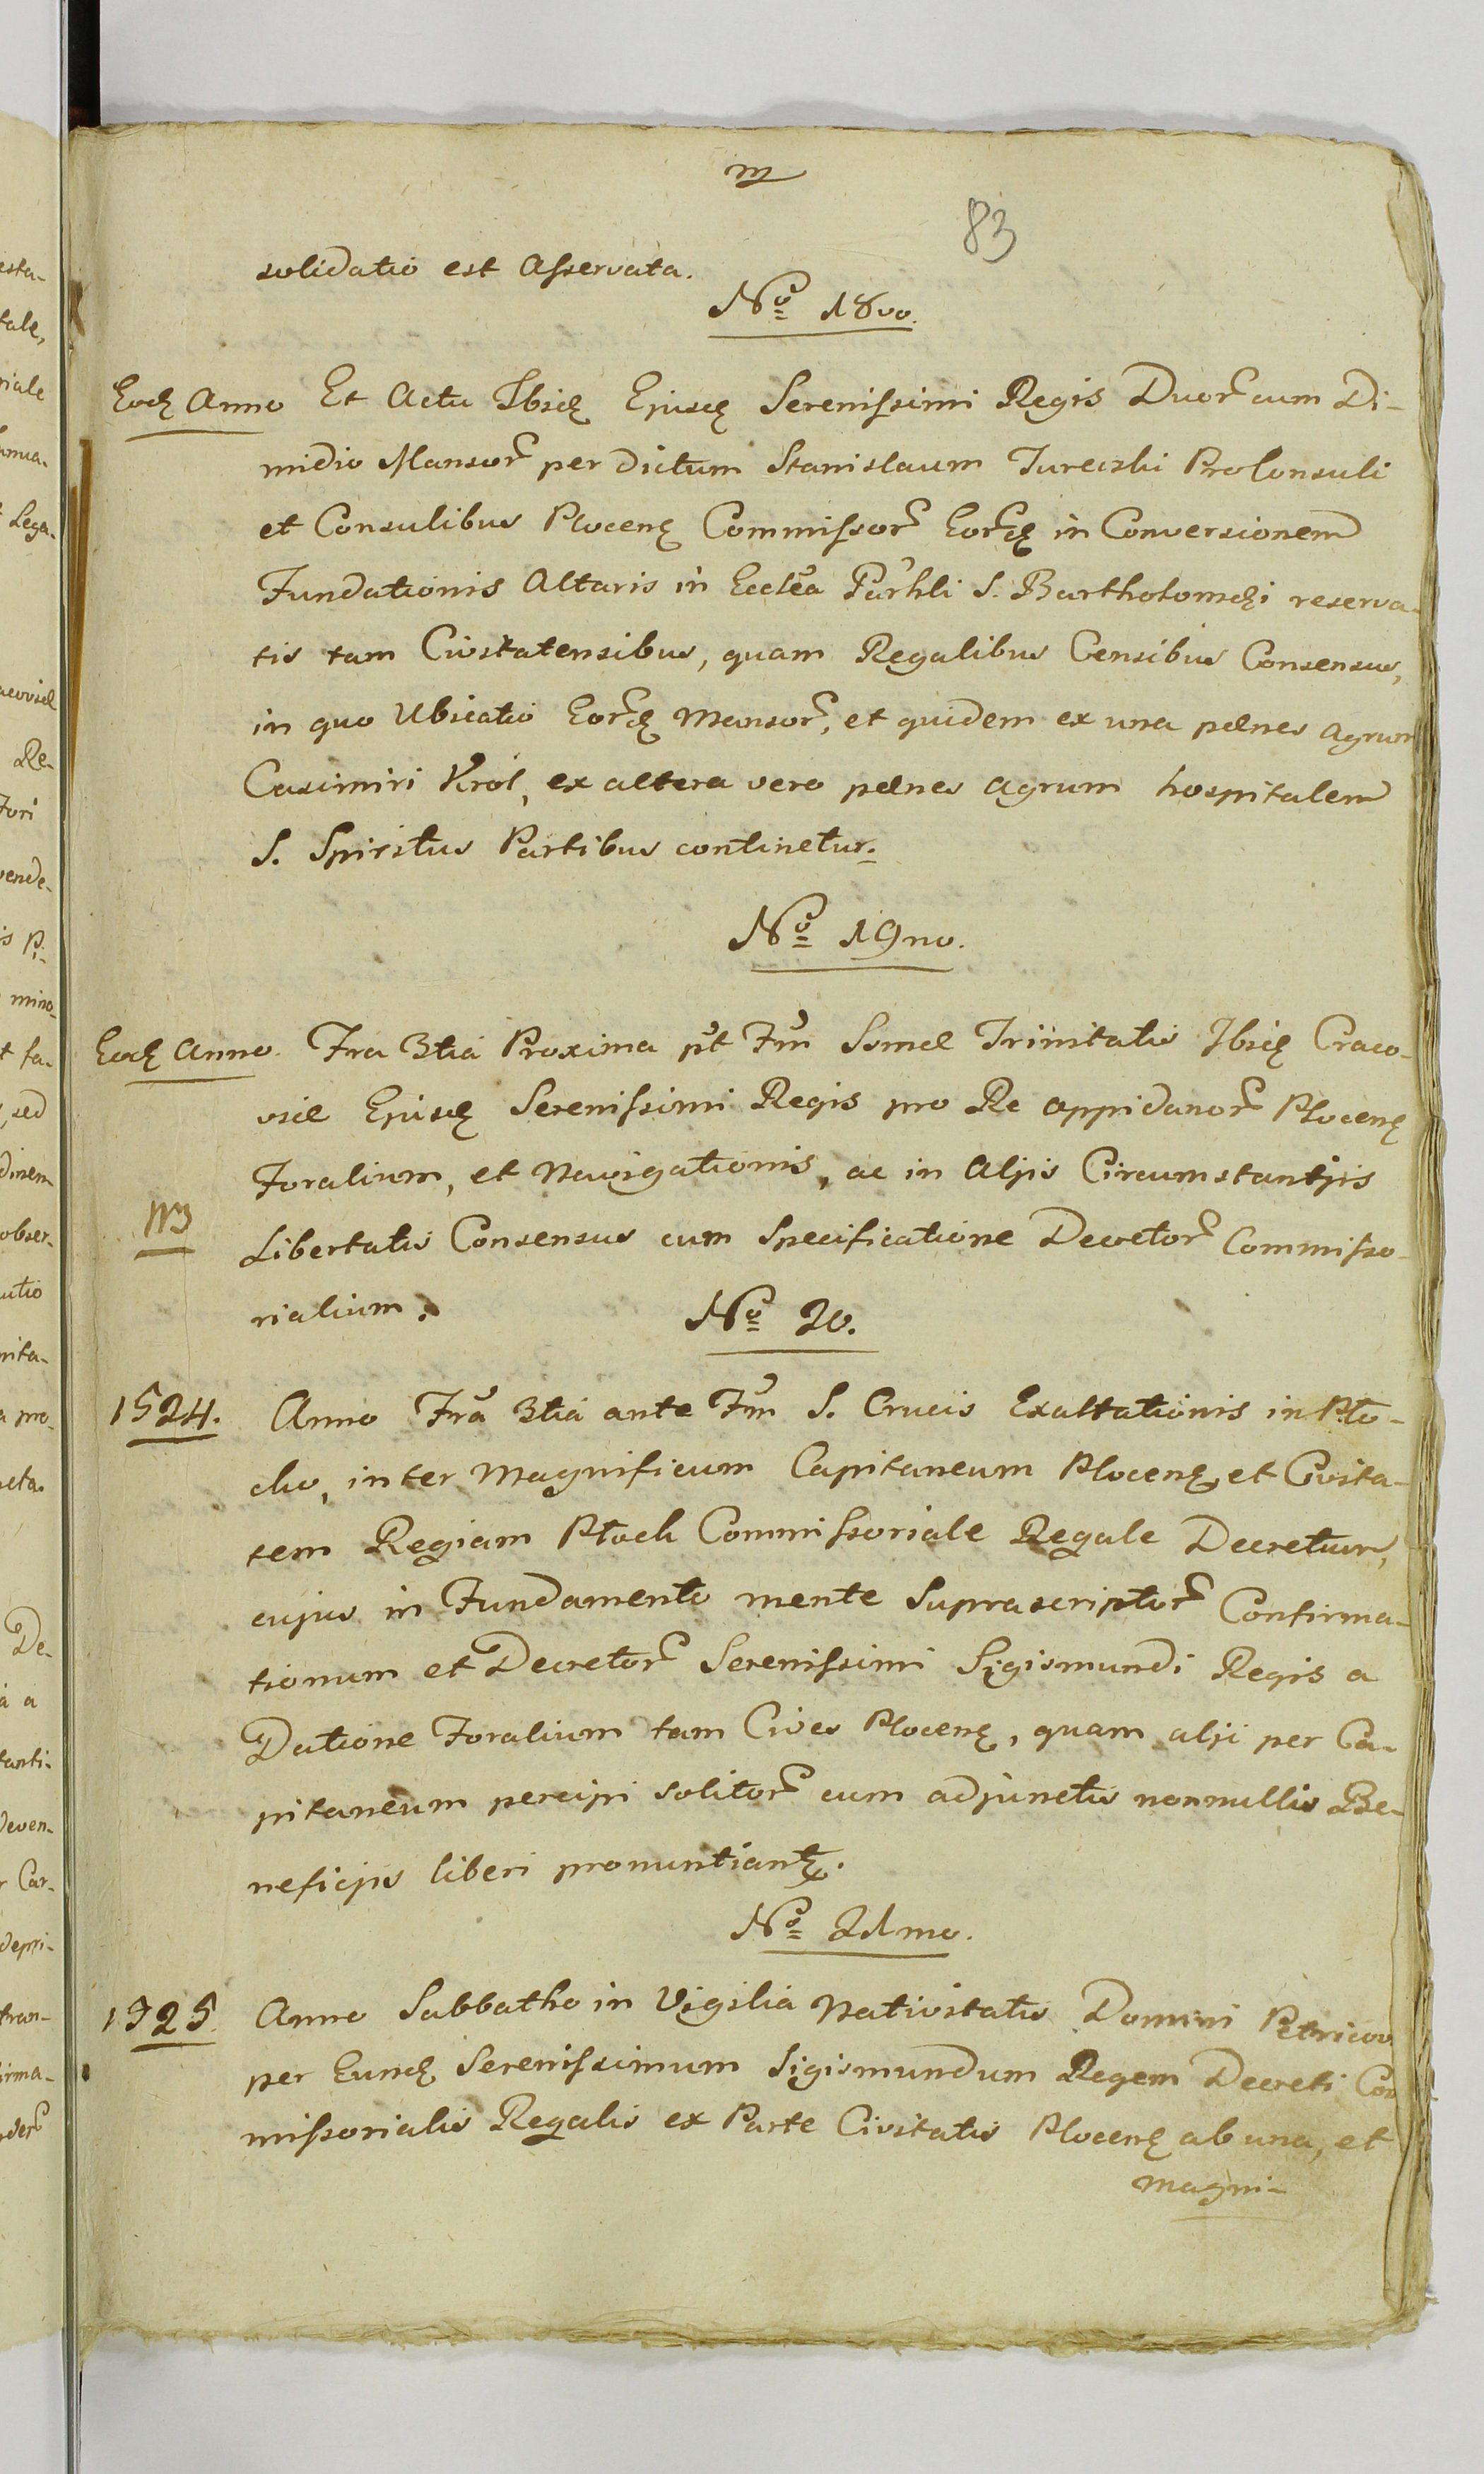 83
solidatio est Asservata.
No 18vo.
Eod Anno Et Actu Ibid Ejusd Serenissimi Regis Duor cum Di-
midio Mansor per dictum Stanislaum Jurecski ProConsuli
et Consulibus Plocens Commissor Eord in Conversionem
Fundationis Altaris in Ecclea Parhli S. Bartholomæi reserva-
tis tam Civitatensibus, quam Regalibus Censibus Consensus,
in quo Ubicatio Eord Mansor, et quidem ex una pænes Agrum
Casimiri Król, ex altera vero pænes Agrum hospitalem
S. Spiritus Partibus continetur.
No 19no.
Eod Anno. Fra 3tia Proxima pt Fm Ssmæ Trinitatis Ibid Craco-
viæ Ejusd Serenissimi Regis pro Re oppidanor Plocens
Foralium, et Navigationis, ac in Alijs Circumstantijs
NB
Libertatis Consensus cum Specificatione Decretor Commisso-
rialium.
No 20.
1524. Anno Fra 3tia ante Fm S. Crucis Exaltationis in Pło-
cko, inter Magnificum Capitaneum Plocens et Civita-
tem Regiam Płock Commissoriale Regale Decretum,
cujus in Fundamento mente Suprascriptor Confirma-
tionum et Decretor Serenissimi Sigismundi Regis a
Datione Foralium tam Cives Plocens, quam alji per Ca-
pitaneum percipi solitor cum adjunctis nonnullis Be-
neficijs liberi pronuntiant.
No 21mo.
1525. Anno Sabbatho in Vigilia Nativitatis Domini Petricov
per Eund Serenissimum Sigismundum Regem Decreti Com
missorialis Regalis ex Parte Civitatis Plocens ab una, et
Magni-